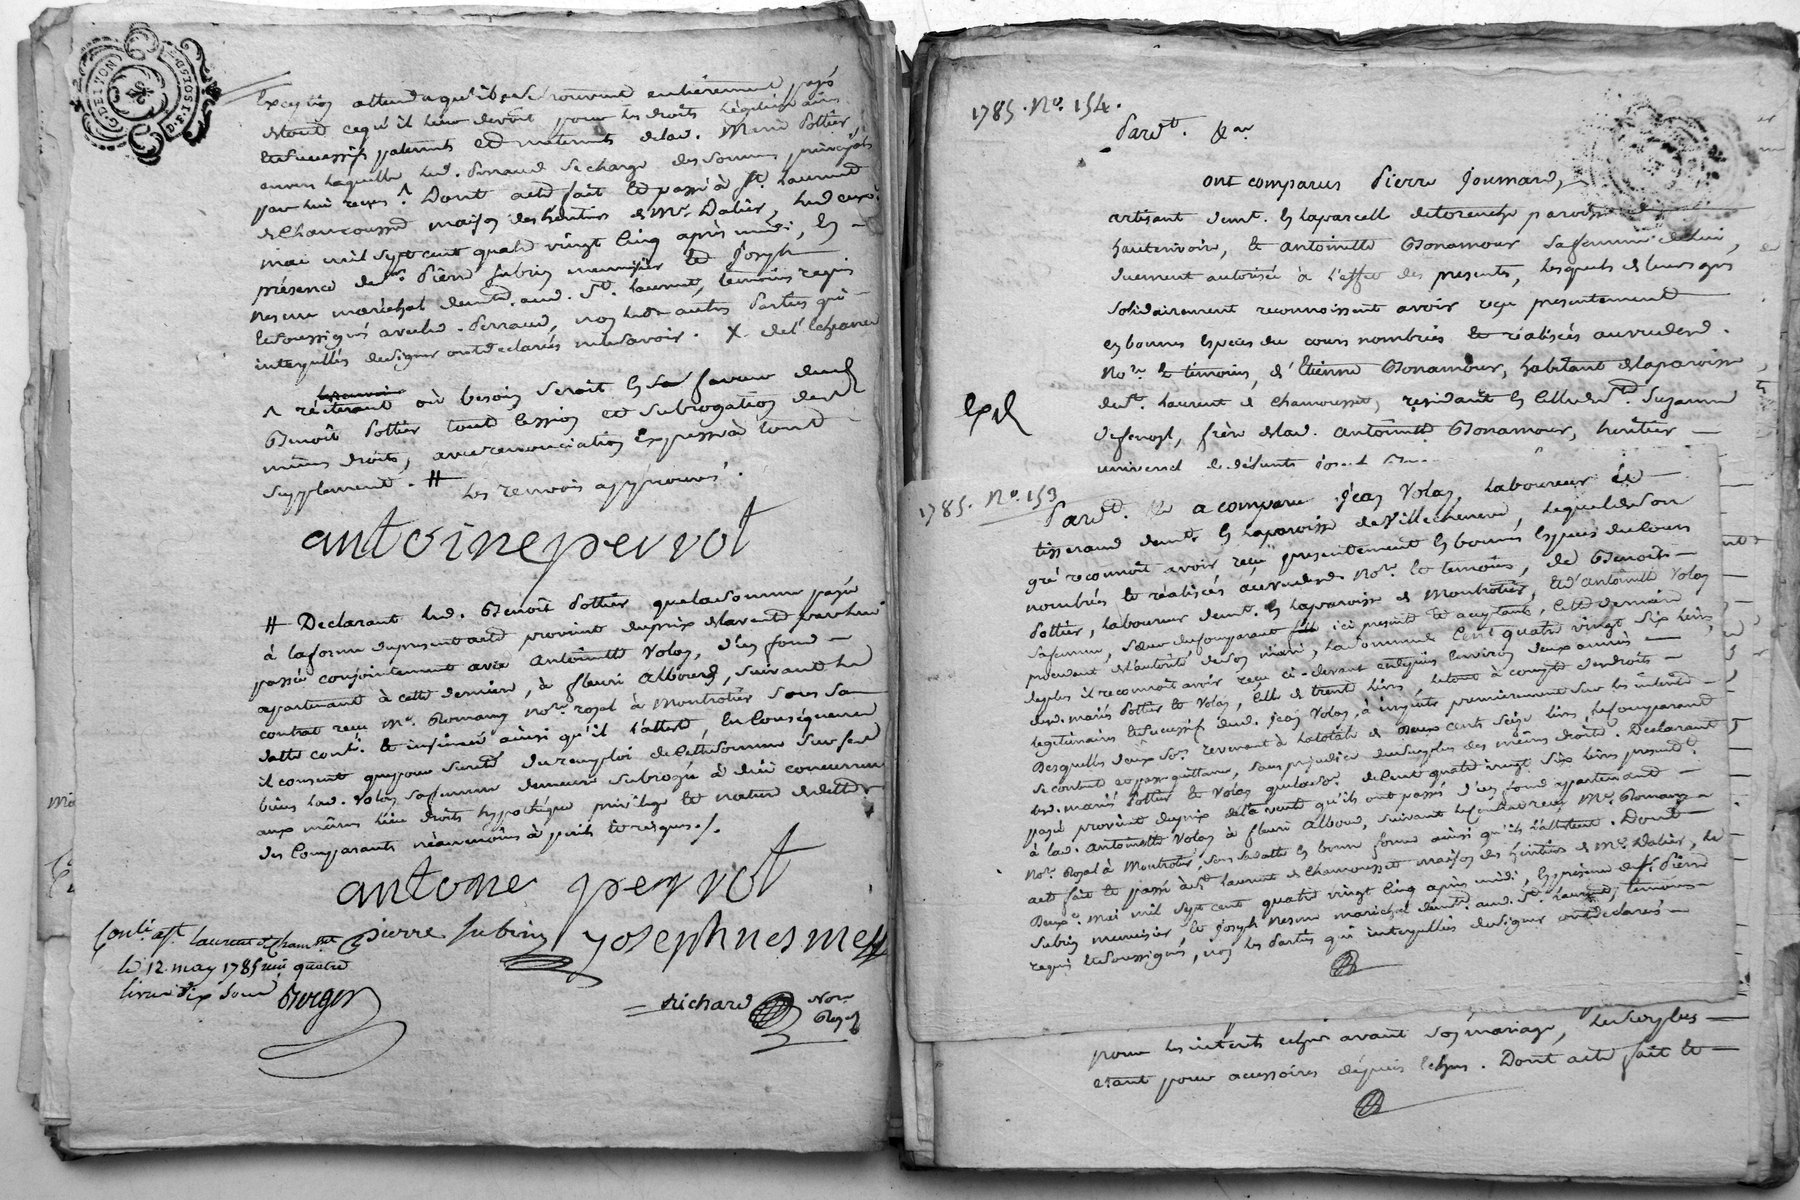 G. DE LYON
exception attendu qu'ils se trouvent entièrement payé
de tout ce qu'il leur devoit pour les droits légitimaires
et successifs paternels et maternels de lad. Marie Pottier
envers laquelle led. Perraud se charge des sommes principales
par lui reçues ^ Dont acte fait et passé à St. Laurent
de Chamousset maison des héritiers de Mr. Dalier, le deux.e
mai mil sept cent quatre vingt cinq après midi, en
présence de Sr. Pierre Subrin menuisier et Joseph
Nesme maréchal demt. aud. St. Laurent, temoins requis
et soussignés avec led. Perraud, non les autres Parties qui
interpellés de signer ont declarés ne le savoir. X
^ réiterant où besoin seroit en sa faveur dud.
Benoît Pottier toute cession et subrogation des
mêmes droits, avec renonciation expresse à tout
supplement. # Les renvois approuvés.
antoine perrot
# Declarant led. Benoît Pottier que la somme payée
à la forme du present acte provient du prix de la vente par lui
passée conjointement avec Antoinette Volay, d'un fond
appartenant à cette derniere, à fleuri Alboud, suivant le
contrat reçu Me. Romany nore. royal à Montrotier sous sa
datte cont. et insinué ainsi qu'il l'atteste, En Conséquence
il consent que pour sureté du remploi de cette somme sur ses
biens lad. Volay sa femme demeure subrogée à due concurrence
aux mêmes lieu droits hypotéque privilege et nature de dette
des Comparants néanmoins à perils et risques./.
antoine perrot
Conlé. à St. Laurent de Chamsset
pierre Subrin
Joseph nesme
le 12 may 1785 reçu quatre
livres dix sous
Berger
Richard
Nore.
Royal
1785. No. 154.
Pardt. &a
ont comparus Pierre Joumard,
artisant demt. en la parcelle de torenche paroisse de
hauterivoire, et antoinette Bonamour sa femme de lui,
duement autorisée à l'effet des presentes, lesquels de leurs gré
solidairement reconnoissent avoir reçu presentement
en bonnes especes du cours nombrées et réalisées au vu desd.
Nore. et temoins, d'Etienne Bonamour, habitant de la paroisse
de St. Laurent de Chamousset, residant en celle de Ste. Suzanne
frère de lad. Antoinette Bonamour, heritier
universel de défunts
Exp
1785. No. 153
Pardt. &a a comparu Jean Volay, laboureur et
tisserand demt. en la paroisse de Villechenève, lequel de son
gré reconnoit avoir reçu presentement en bonnes especes du cours
nombrées et réalisées au vu desd. Nore. et temoins, de Benoît
Pottier, laboureur demt. en la paroisse de Montrotier, et d'antoinette Volay
sa femme, sœur du comparant ici presents et acceptants, cette derniere
procedant de l'autorité de son mari, la somme Cent quatre vingt six livres,
de plus il reconnoit avoir reçu ci-devant et depuis environ deux années
desd. mariés Pottier et Volay, celle de trente livres, le tout à compte des droits
legitimaires et successifs dud. Jean Volay, à imputer premierement sur les interets
Desquelles deux sommes revenant à la totale de Deux cents seize livres, le comparant
se contente et passe quittance, sans prejudice du surplus des mêmes droits. Declarant
lesd. mariés Pottier et Volay que la somme de cent quatre vingt six livres presentemt.
payée provient du prix de la vente qu'ils ont passés d'un fond appartenant
à lad. Antoinette Volay à fleuri Alboud, suivant le contrat reçu Me. Romany
Nore. Royal à Montrotier, sous sa datte en bonne forme ainsi qu'ils l'attestent. Dont
acte fait et passé à St. Laurent de Chamousset maison des héritiers de Mr. Dalier, le
Deuxe. mai mil sept cent quatre vingt cinq après midi, en presence de Sr. Pierre
Subrin menuisier, et Joseph Nesme maréchal demt. aud. St. Laurent, temoins
requis et soussignés, non les Parties qui interpellées de signer ont declarés
pour les interets echus avant son mariage, le surplus
etant pour accessoires dépuis echus. Dont acte fait et